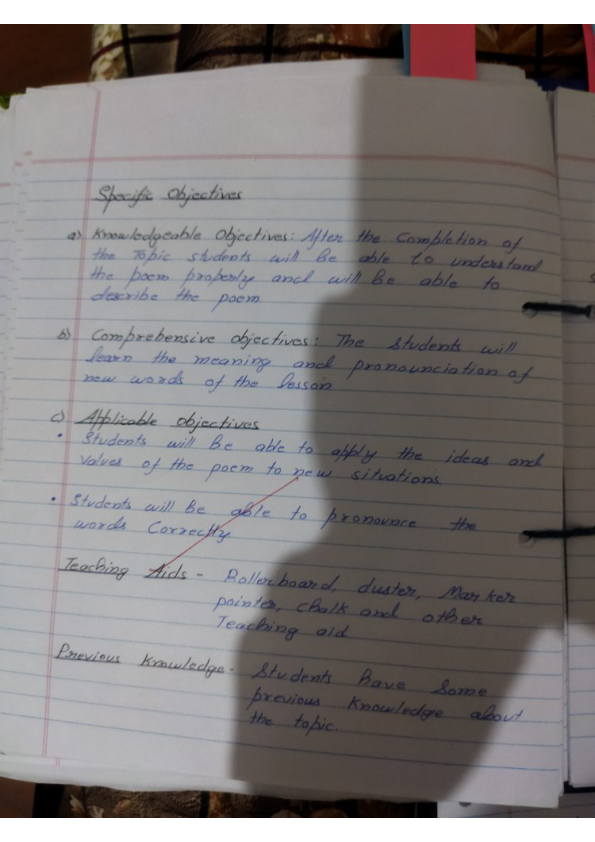 Specific Objectives
a) Knowledgeable Objectives: After the Completion of
the Topic students will Be able to understand
the poem properly and will Be able to
describe the poem
b) Comprehensive objectives: The students will
learn the meaning and pronounciation of
new words of the lesson
c) Applicable objectives
• Students will Be able to apply the ideas and
values of the poem to new situations
• Students will Be able to pronounce the
words Correctly
Teaching Aids - Rollerboard, duster, Marker
pointer, chalk and other
Teaching aid
Previous Knowledge - Students have some
previous Knowledge about
the topic.